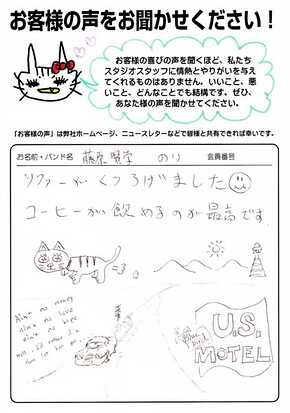 お客様の声をお聞かせください！
お客様の喜びの声を聞くほど、私たち
スタジオスタッフに情熱とやりがいを与え
てくれるものはありません。いいこと、悪
いこと、どんなことでも結構です。ぜひ、
あなた様の声を聞かせてください。
「お客様の声」は弊社ホームページ、ニュースレターなどで皆様と共有できれば幸いです。
お名前・バンド名 藤原 のり 会員番号
ソファーがくつろげました
コーヒーが飲めるのが最高です
Ain't no money
ain't no love
ain't no hope
U.S.
MOTEL